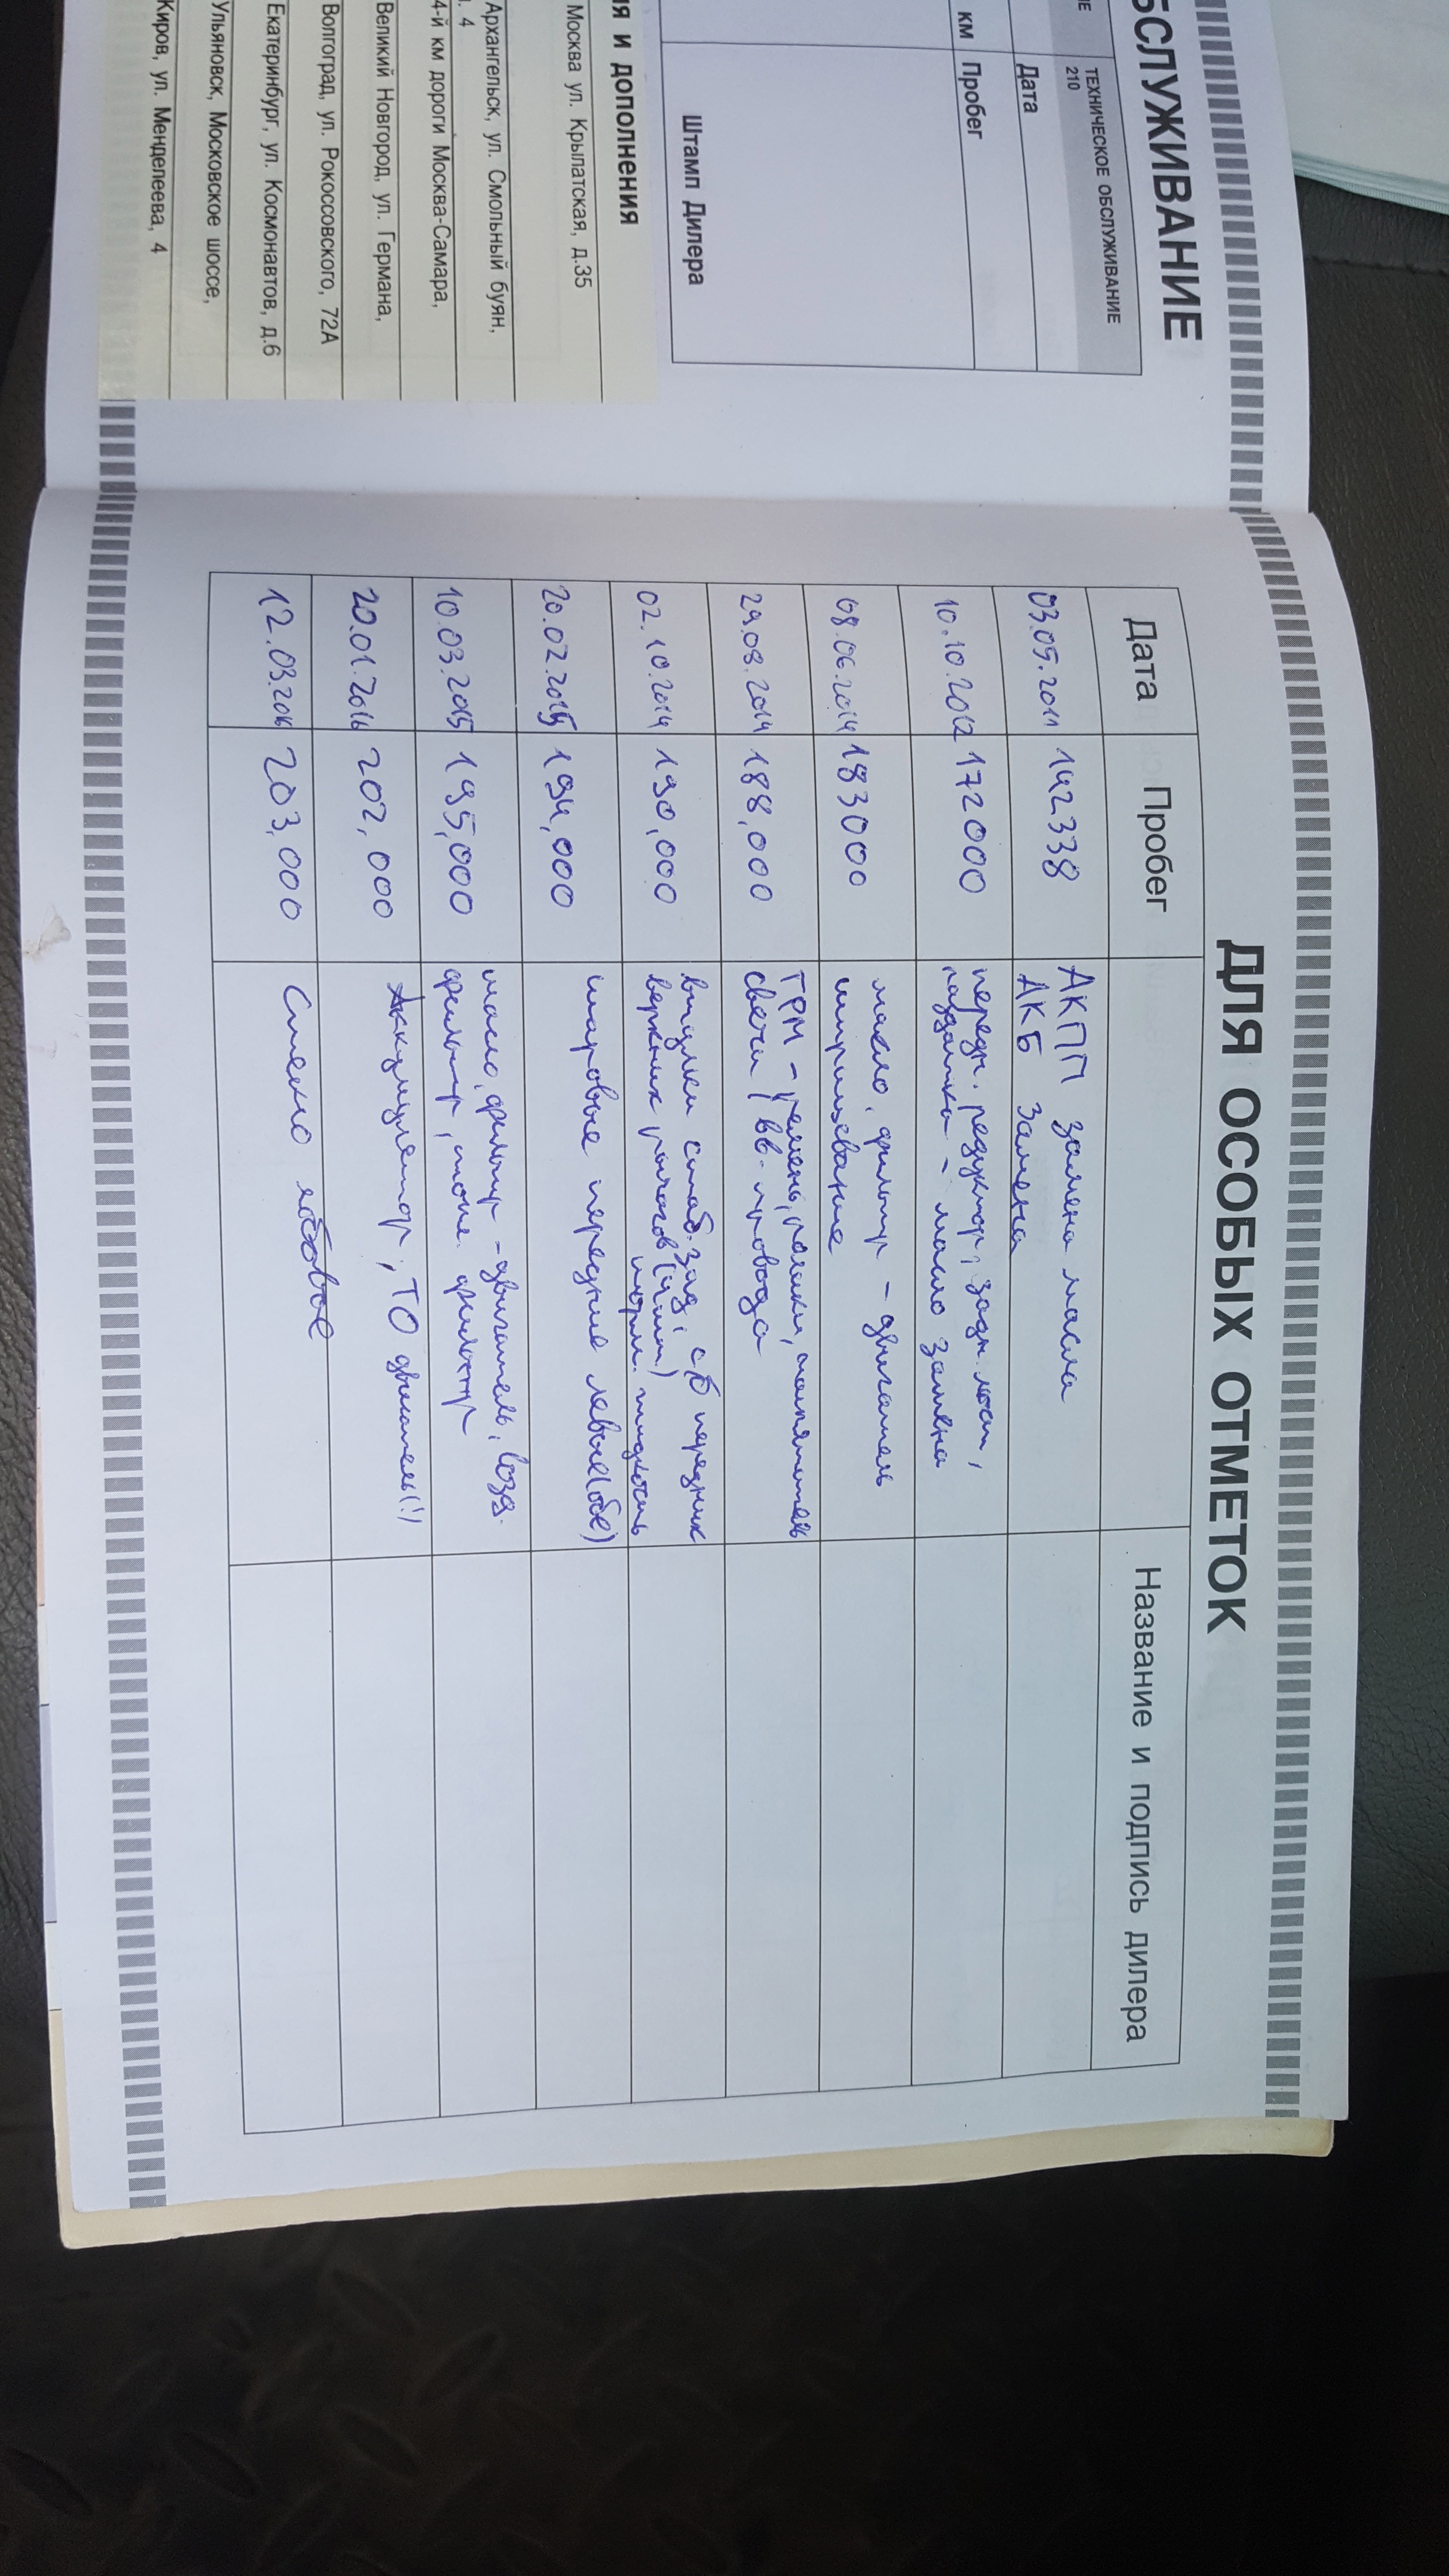 БСЛУЖИВАНИЕ
ТЕХНИЧЕСКОЕ ОБСЛУЖИВАНИЕ
210
Дата
км Пробег
Штамп Дилера
я и дополнения
Москва ул. Крылатская, д.35
Архангельск, ул. Смольный буян,
4-й км дороги Москва-Самара,
Великий Новгород, ул. Германа,
Волгоград, ул. Рокоссовского, 72А
Екатеринбург, ул. Космонавтов, д.6
Ульяновск, Московское шоссе,
Киров, ул. Менделеева, 4
ДЛЯ ОСОБЫХ ОТМЕТОК
Дата Пробег Название и подпись дилера
03.05.2011 142338 АКПП замена масла
АКБ замена
10.10.2012 172000 передн. редуктор, задн. мост,
раздатка - масло замена
08.06.2014 183000 масло, фильтр - двигатель
шприцевание
29.08.2014 188,000 ГРМ - ремень, ролики, натяжитель
свечи, вв. провода
02.10.2014 190,000 втулки стаб. зад, с/б передних
верхних рычагов (4шт)
торм. жидкость
20.02.2015 194,000 шаровые передние левые (обе)
10.03.2015 195,000 масло, фильтр - двигатель, возд.
фильтр, топл. фильтр
20.01.2016 202,000 Аккумулятор, ТО двигатель(!)
12.03.2016 203,000 Стекло лобовое